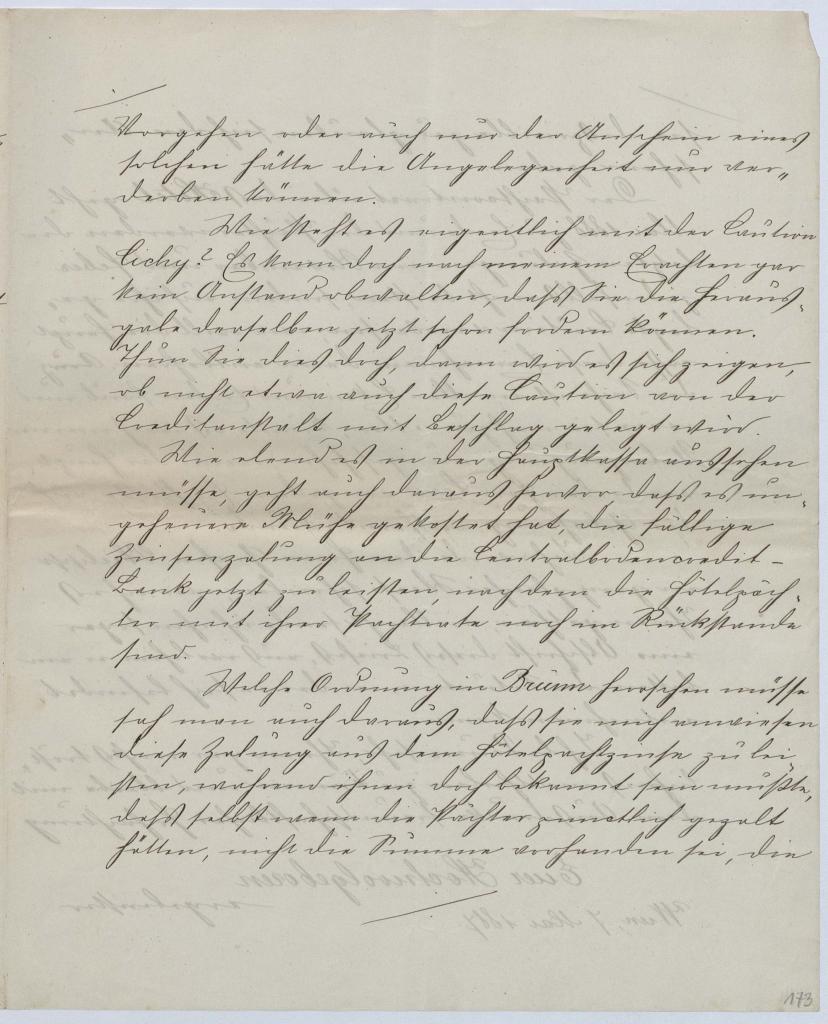 Vorgehen oder auch nur der Anschein eines
solchen hätte die Angelegenheit nur ver„
derben können.
Wie steht es eigentlich mit der Caution
Cichy? Es kann doch nach meinem Erachten gar
kein Anstand obwalten, dass Sie die Heraus-
gabe derselben jetzt schon fordern können.
Thun Sie dies doch, dann wird es sich zeigen,
ob nicht etwa auch diese Caution von der
Creditanstalt mit Beschlag gelegt wird.
Wie elend es in der Hauptkassa aussehen
müsse, geht auch daraus hervor dass es un-
geheuere Mühe gekostet hat, die fällige
Zinsenzalung an die Centralbodencredit-
Bank jetzt zu leisten, nachdem die Hôtelpäch-
ter mit ihrer Pachtrate noch im Rückstande
sind.
Welche Ordnung in Brünn herrschen müsse
sah man auch daraus, dass sie mich anwiesen
diese Zalung aus dem Hôtelpachtzinse zu lei
sten, während ihnen doch bekannt sein mußte,
dass selbst wenn die Pächter pünctlich gezalt
hätten, nicht die Summe vorhanden sei, die
173